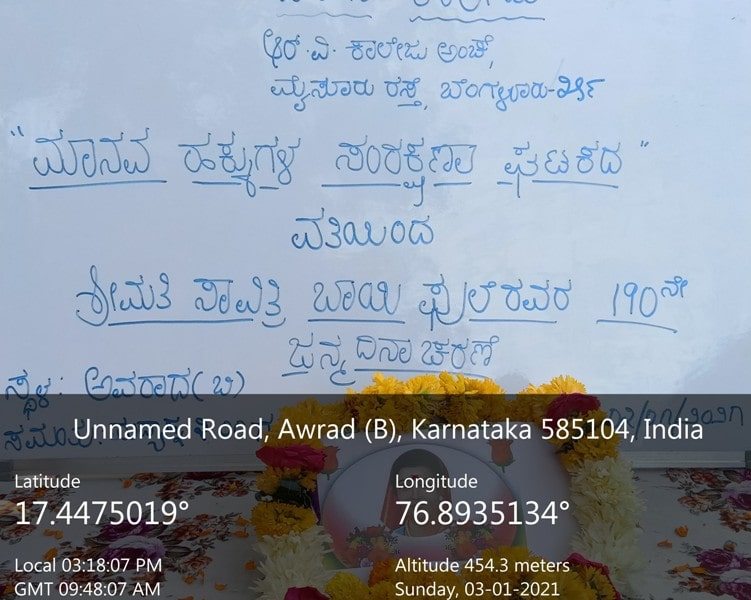 ಆರ್.ವಿ. ಕಾಲೇಜು ಅಂಚೆ,
ಮೈಸೂರು ರಸ್ತೆ, ಬೆಂಗಳೂರು-೫೯
"ಮಾನವ ಹಕ್ಕುಗಳ ಸಂರಕ್ಷಣಾ ಘಟಕದ"
ವತಿಯಿಂದ
ಶ್ರೀಮತಿ ಸಾವಿತ್ರಿ ಬಾಯಿ ಫುಲೆರವರ 190ನೇ
ಜನ್ಮ ದಿನಾಚರಣೆ
ಸ್ಥಳ: ಅವರಾದ(ಬಿ)
Unnamed Road, Awrad (B), Karnataka 585104, India
Latitude
17.4475019°
Longitude
76.8935134°
Local 03:18:07 PM
GMT 09:48:07 AM
Altitude 454.3 meters
Sunday, 03-01-2021